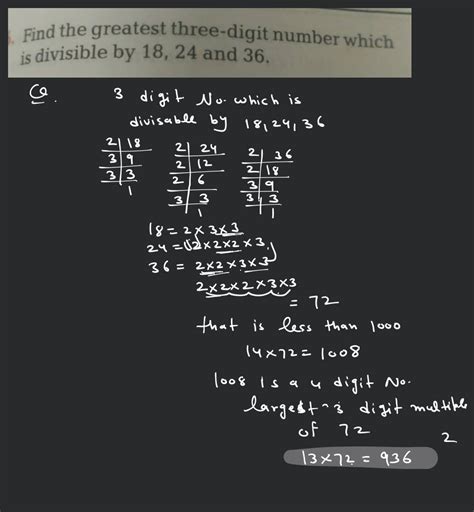 3. Find the greatest three-digit number which
is divisible by 18, 24 and 36.
Q.
3 digit No. which is
divisable by 18,24,36
2|18
3|9
3|3
1
2|24
2|12
2|6
3|3
1
2|36
2|18
3|9
3|3
1
18=2×3×3
24=2×2×2×3
36=2×2×3×3
2×2×2×3×3
=72
that is less than 1000
14×72=1008
1008 is a 4 digit No.
largest 3 digit multiple
of 72
2
13×72=936